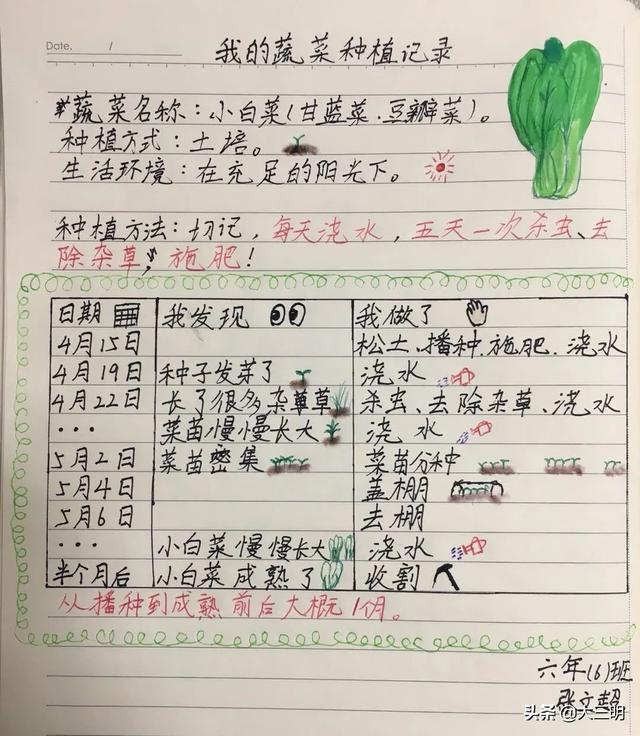 Date. /
我的蔬菜种植记录
蔬菜名称：小白菜（甘蓝菜.豆瓣菜）。
种植方式：土培。
生活环境：在充足的阳光下。
种植方法：切记，每天浇水，五天一次杀虫、去
除杂草，施肥！
日期 我发现 我做了
4月15日 松土、播种.施肥.浇水
4月19日 种子发芽了 浇水
4月22日 长了很多杂草草 杀虫、去除杂草、浇水
... 菜苗慢慢长大 浇水
5月2日 菜苗密集 菜苗分种
5月4日 盖棚
5月6日 去棚
... 小白菜慢慢长大 浇水
半个月后 小白菜成熟了 收割
从播种到成熟前后大概1个月。
六年(6)班
张文超
头条@大三明